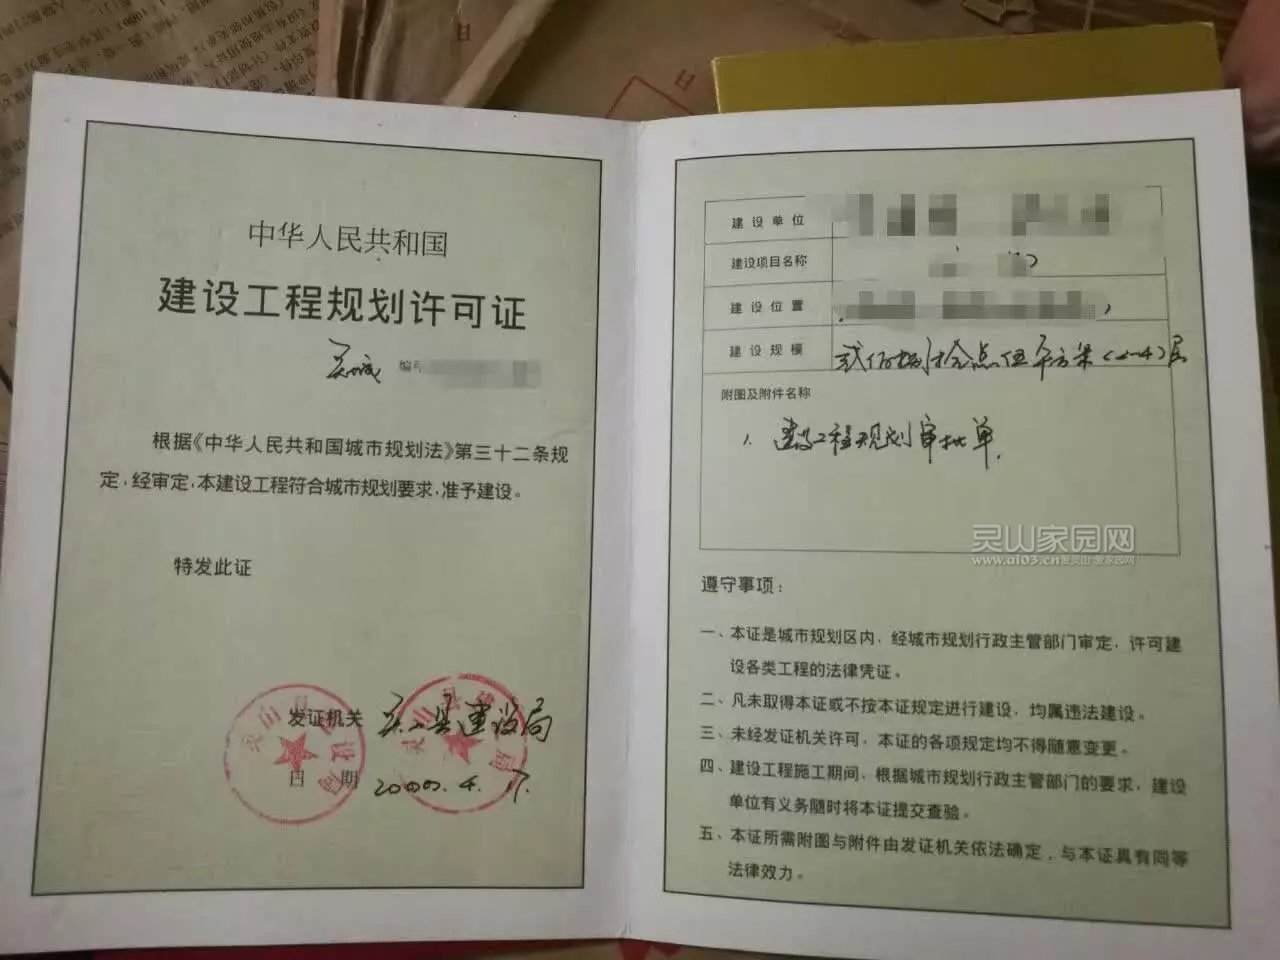 中华人民共和国
建设工程规划许可证
编号
根据《中华人民共和国城市规划法》第三十二条规
定，经审定，本建设工程符合城市规划要求，准予建设。
特发此证
发证机关 灵山县建设局
日 期 2000.4.17.
建设单位
建设项目名称
建设位置
建设规模 平方米(2-4)层
附图及附件名称
1. 建设工程规划审批单.
灵山家园网
www.al03.cn爱灵山 爱家园网
遵守事项：
一、本证是城市规划区内，经城市规划行政主管部门审定，许可建
设各类工程的法律凭证。
二、凡未取得本证或不按本证规定进行建设，均属违法建设。
三、未经发证机关许可，本证的各项规定均不得随意变更。
四、建设工程施工期间，根据城市规划行政主管部门的要求，建设
单位有义务随时将本证提交查验。
五、本证所需附图与附件由发证机关依法确定，与本证具有同等
法律效力。